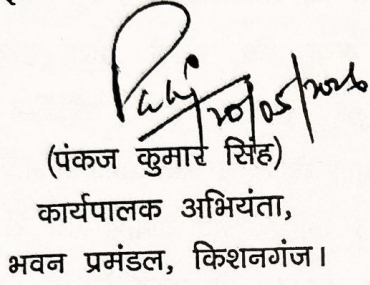 20/05/2026
(पंकज कुमार सिंह)
कार्यपालक अभियंता,
भवन प्रमंडल, किशनगंज।